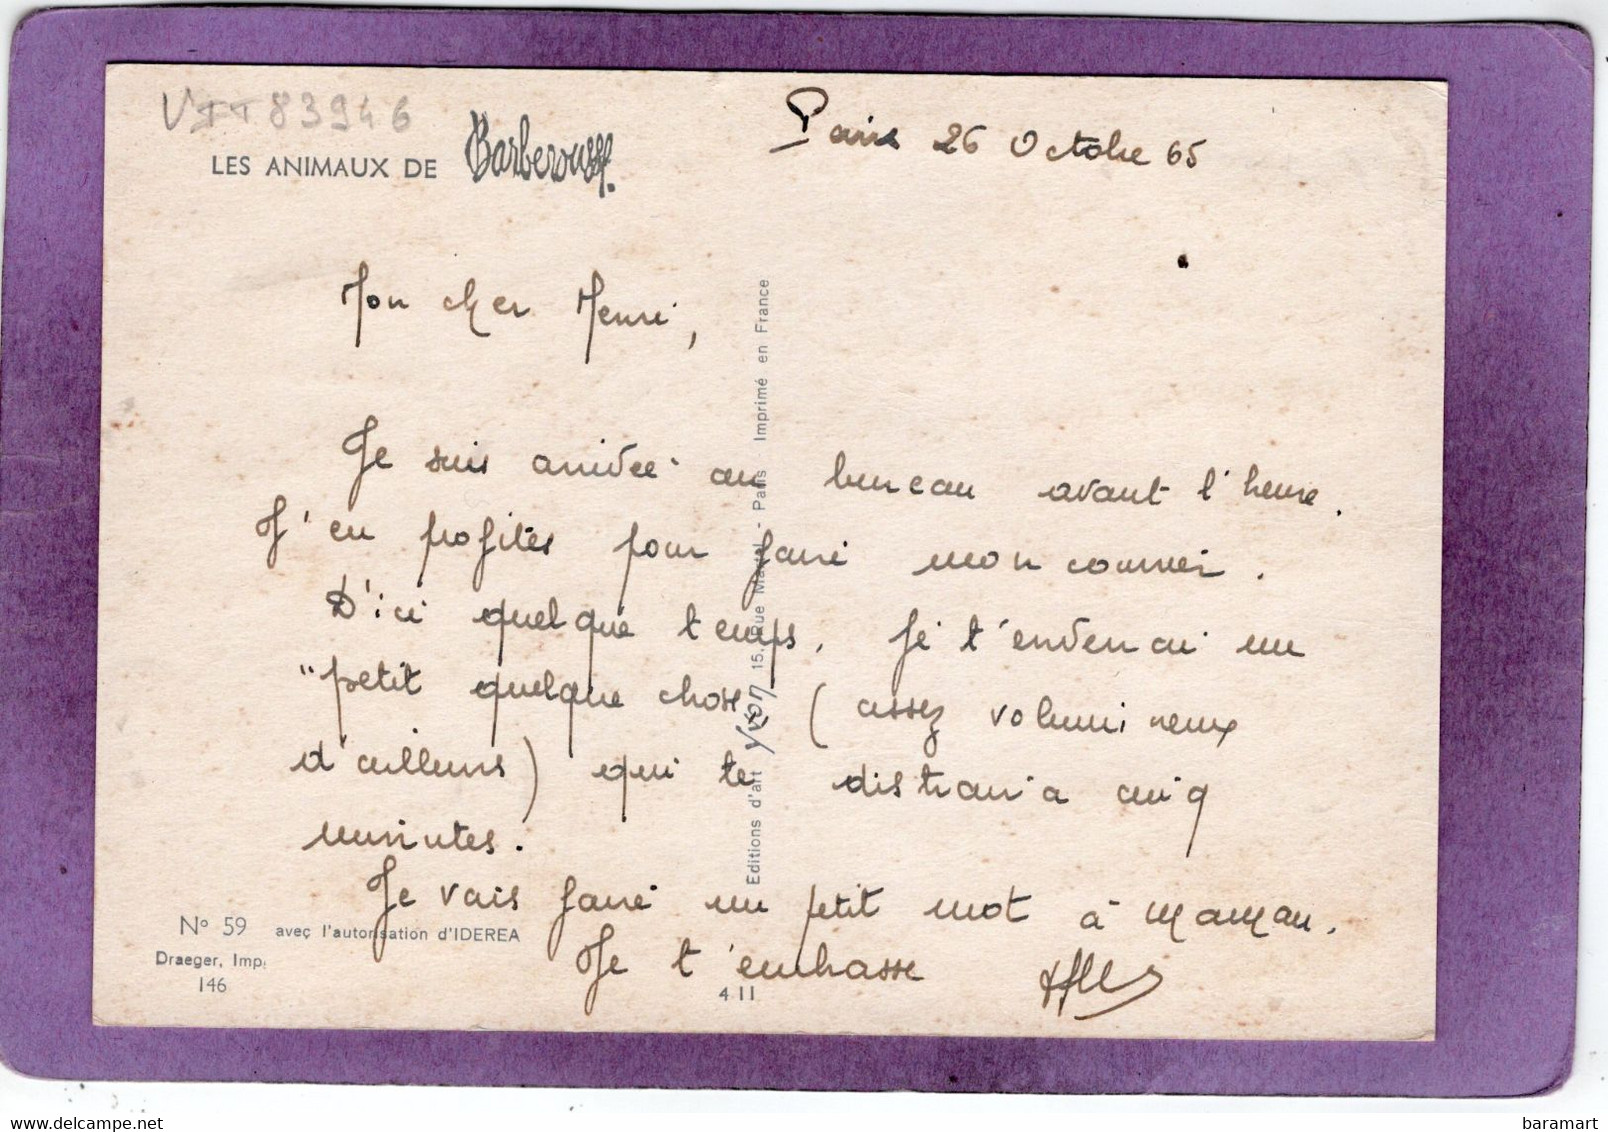 83946
LES ANIMAUX DE Barberousse.
Paris 26 Octobre 65
Mon cher Henri,
Je suis arrivée au bureau avant l'heure.
J'en profites pour faire mon courrier.
D'ici quelque temps, je t'enverrai un
"petit quelque chose" (assez volumineux
d'ailleurs) qui te distraira cinq
minutes.
Je vais faire un petit mot à maman.
Je t'embrasse
Nº 59 avec l'autorisation d'IDEREA
Draeger, Imp.
146
4 11
Editions d'art Yvon 15, Rue Martel - Paris - Imprimé en France
baramart